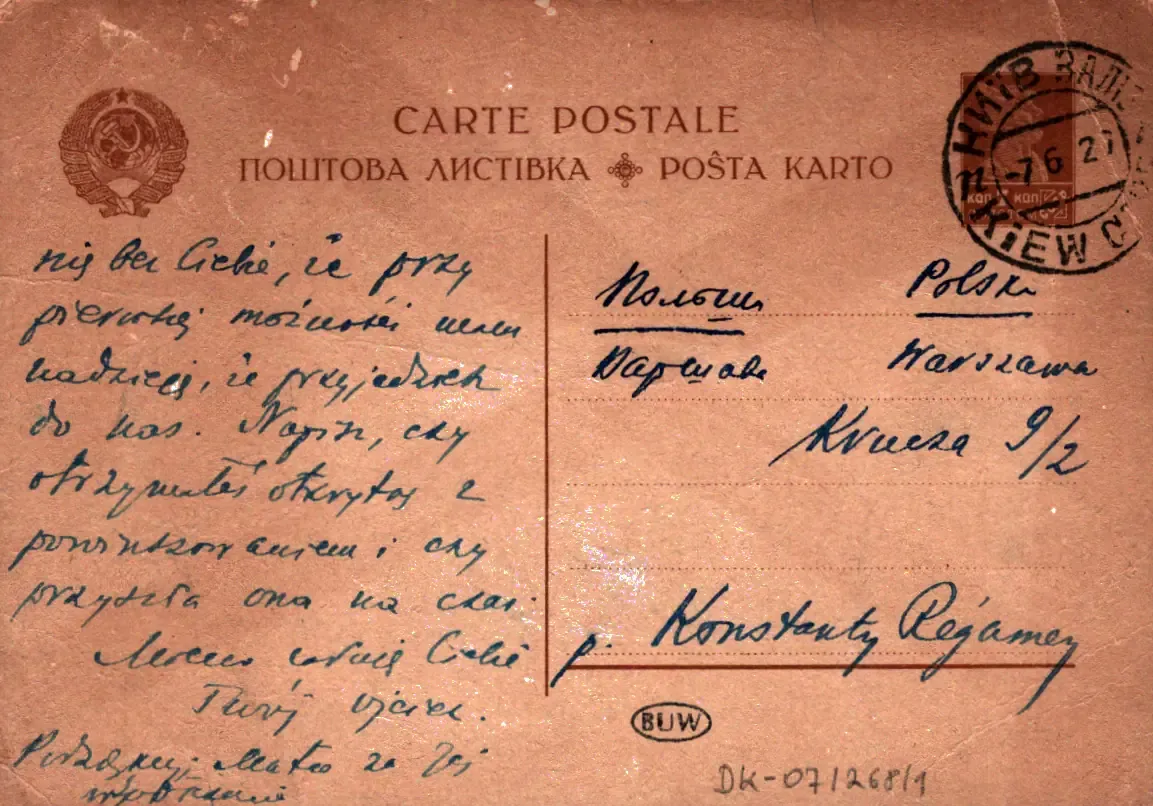 CARTE POSTALE
ПОШТОВА ЛИСТІВКА POŜTA KARTO
КИЇВ ЗАЛІ
-7 6 27
KIEW
КОП КОП
nię bez Ciebie, że przy
pierwszej możności mam
nadzieję, że przyjedziesz
do nas. Napisz, czy
otrzymałeś otkrytkę z
powinszowaniem i czy
przyszła ona na czas.
Mocno całuję Ciebie
Twój ojciec.
Podziękuj Matce za Jej
Польша Polska
Варшава Warszawa
Krucza 9/2
p. Konstanty Régamey
BUW
DK-07/268/1